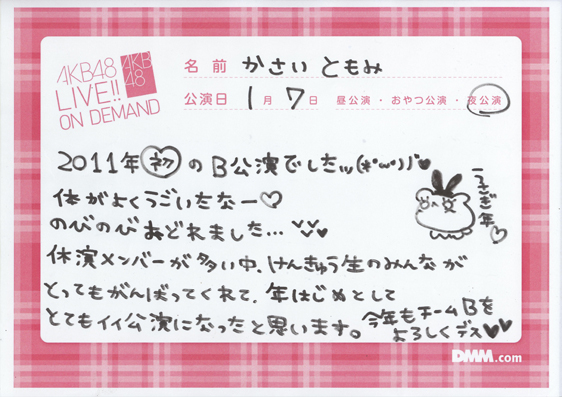 AKB48
LIVE!!
ON DEMAND
AKB
48
名前 かさい ともみ
公演日 1月7日 昼公演・おやつ公演・夜公演
2011年初のB公演でしたッッ(*'ω')ﾉﾞ♥
体がよくうごいたなー♡
のびのびおどれました…
うさぎ年♡
休演メンバーが多い中、けんきゅう生のみんなが
とってもがんばってくれて、年はじめとして
とてもイイ公演になったと思います。今年もチームBを
よろしくデス♥♥
DMM.com